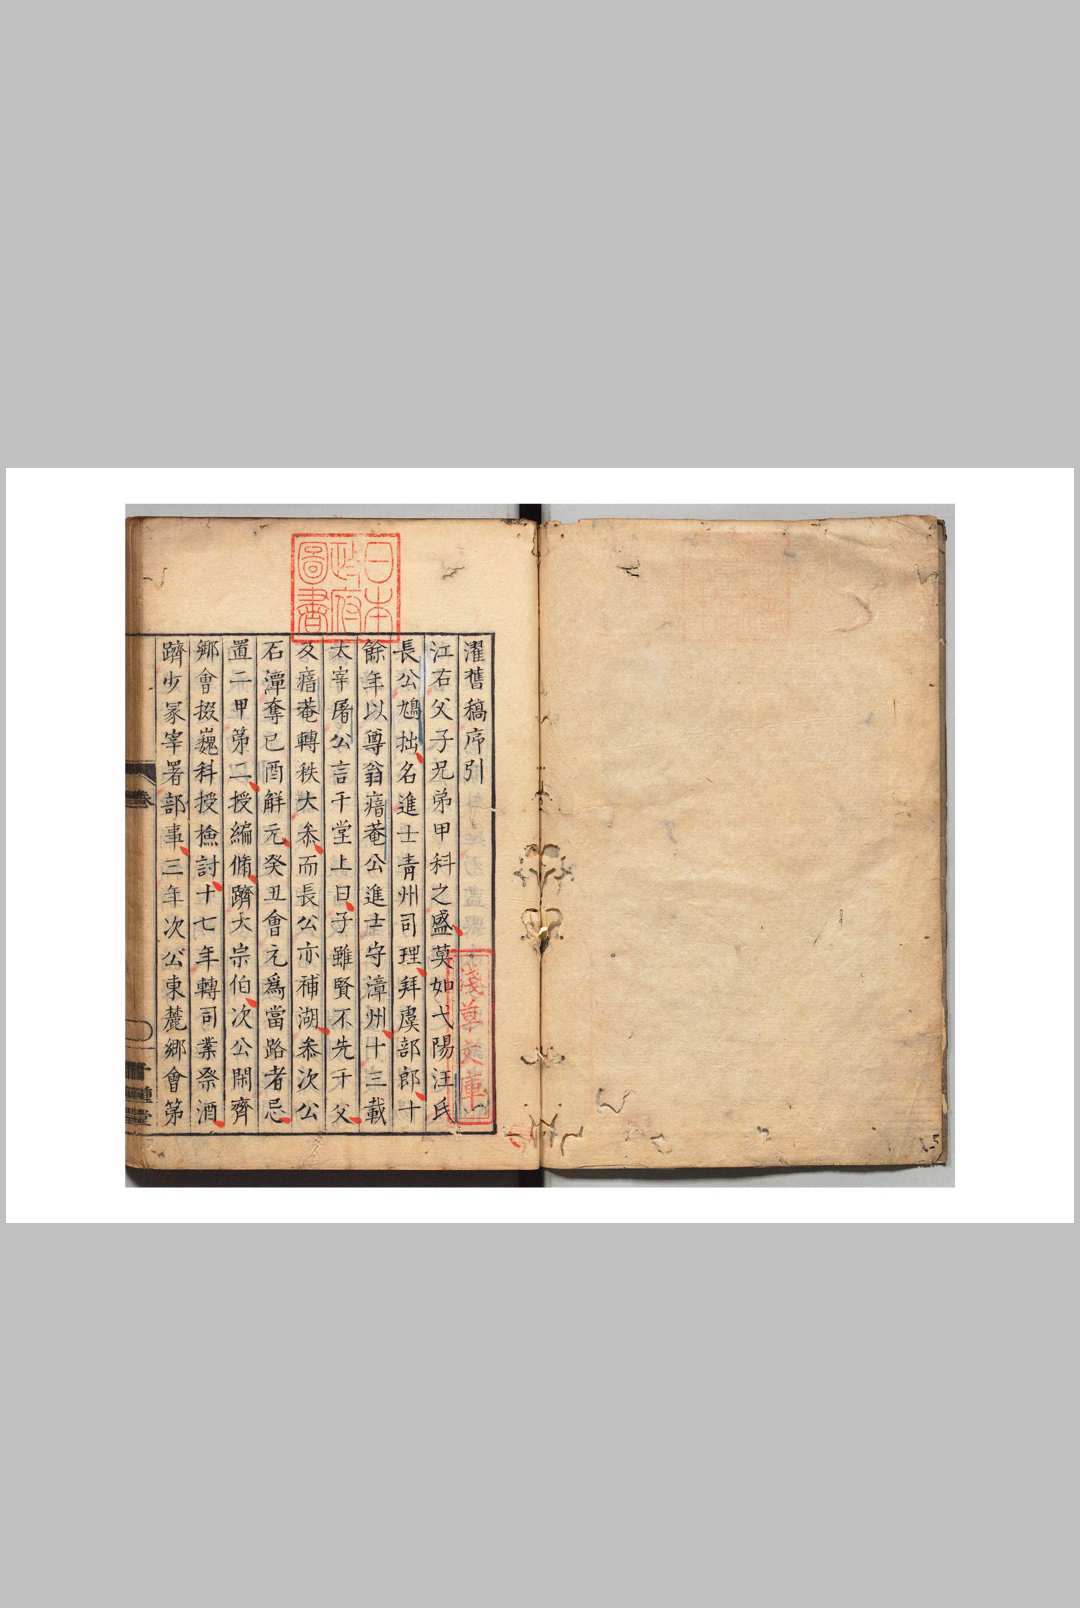 日本
政府
圖書
濯舊稿序引
江右父子兄弟甲科之盛莫如弋陽汪氏
長公鳩拙名進士青州司理拜虞部郎十
餘年以尊翁瘖菴公進士守漳州十三載
太宰屠公言于堂上曰子雖賢不先于父
及瘖菴轉秩大叅而長公亦補湖叅次公
石潭奪已酉觧元癸丑會元爲當路者忌
置二甲第二授編脩躋大宗伯次公閒齊
鄉會掇巍科授檢討十七年轉司業祭酒
躋少冢宰署部事三年次公東麓鄉會第
淺草文庫